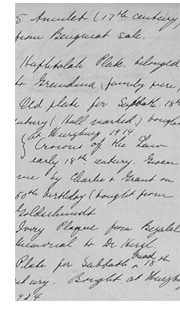 5 Amulet (17th century)
from Benguiat sale.
Kiphtolah Plate, belonged
to Grandma, family piece,
Old plate for Sabbath 18th
century (Hall marked) bought
at Wurzburg 1914
Crowns of the Law
early 18th century. Given
me by Charles & Grand on
50th birthday (bought from
Goldschmidt
Ivory Plaque from Bezalel
memorial to Dr Herzl
Plate for Sabbath 18th
century. Bought at Wurzburg